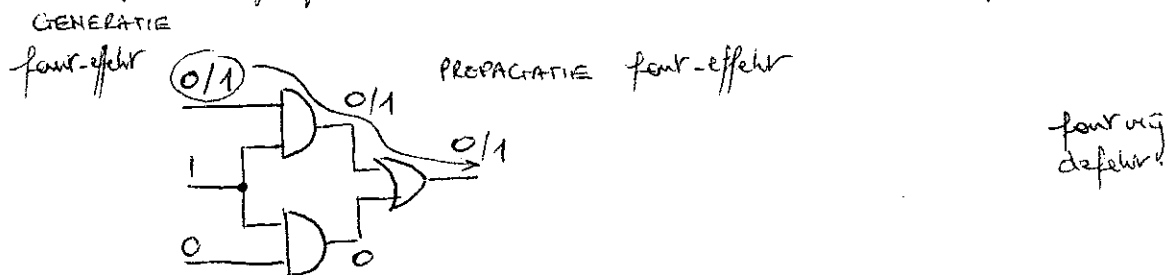 GENERATIE
fout-effekt
PROPAGATIE fout-effekt
0/1
0/1
0/1
fout vrij
defekt.
1
0
0